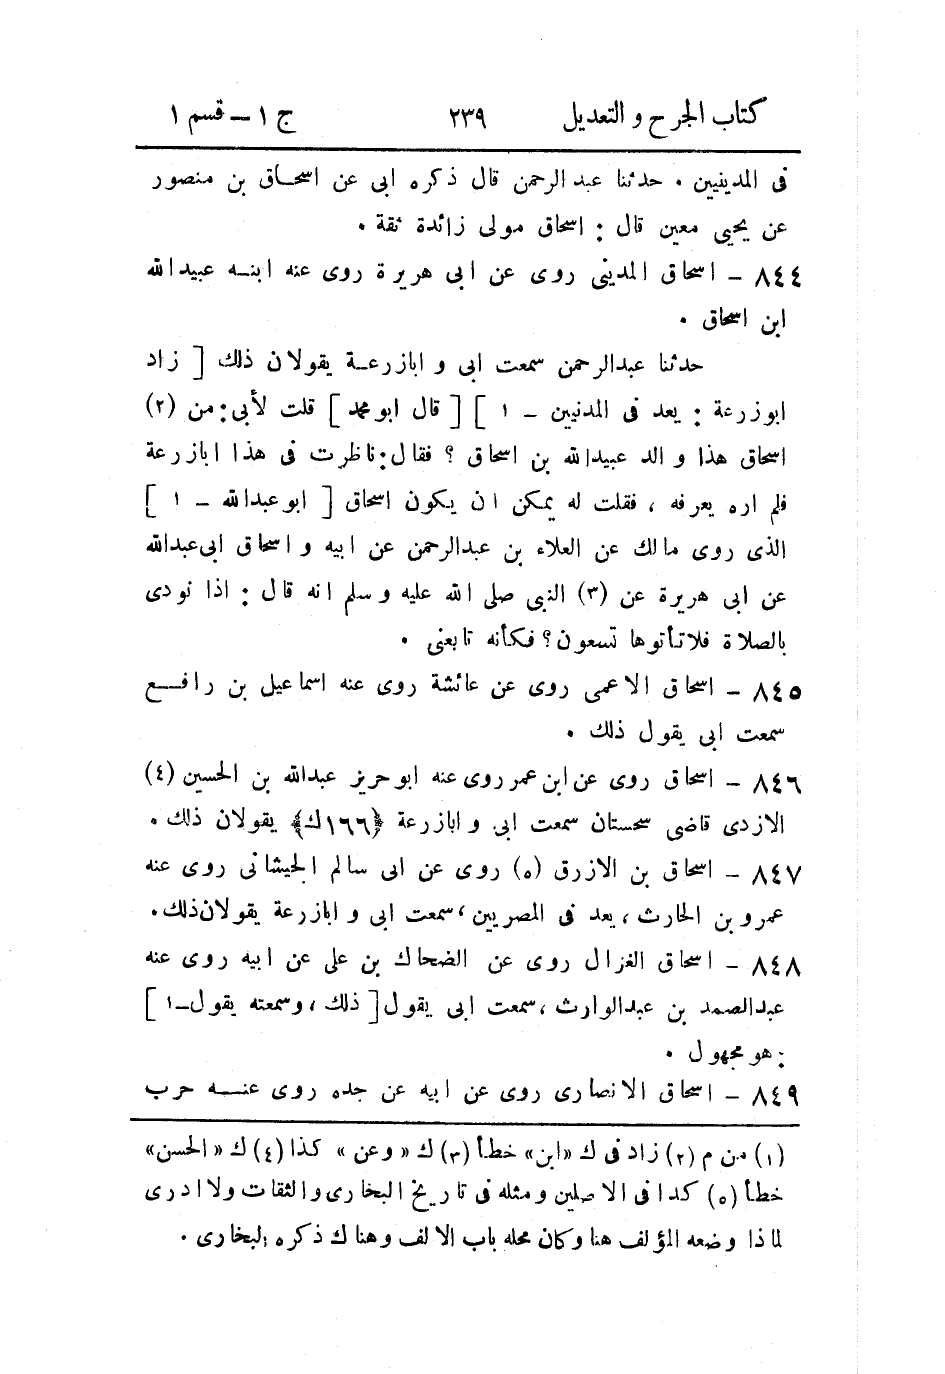 كتاب الجرح والتعديل ٢٣٩ ج ١ – قسم ١
فى المدينيين . حدثنا عبد الرحمن قال ذكره ابى عن اسحاق بن منصور
عن يحيى معين قال : اسحاق مولى زائدة ثقة .
٨٤٤ – اسحاق المدينى روى عن ابى هريرة روى عنه ابنه عبيدالله
ابن اسحاق .
حدثنا عبدالرحمن سمعت ابى و ابازرعة يقولان ذلك [ زاد
ابوزرعة : يعد فى المدنيين – ١ ] [ قال ابو محمد ] قلت لأبى : من (٢)
اسحاق هذا والد عبيدالله بن اسحاق ؟ فقال : ناظرت فى هذا ابازرعة
فلم اره يعرفه ، فقلت له يمكن ان يكون اسحاق [ ابو عبدالله – ١ ]
الذى روى مالك عن العلاء بن عبدالرحمن عن ابيه و اسحاق ابى عبدالله
عن ابى هريرة عن (٣) النبى صلى الله عليه وسلم انه قال : اذا نودى
بالصلاة فلا تأتوها تسعون ؟ فكأنه تابعى .
٨٤٥ – اسحاق الاعمى روى عن عائشة روى عنه اسماعيل بن رافع
سمعت ابى يقول ذلك .
٨٤٦ – اسحاق روى عن ابن عمر روى عنه ابو حريز عبدالله بن الحسين (٤)
الازدى قاضى سجستان سمعت ابى و ابازرعة ﴿١٦٦ك﴾ يقولان ذلك .
٨٤٧ – اسحاق بن الازرق (٥) روى عن ابى سالم الجيشانى روى عنه
عمرو بن الحارث ، يعد فى المصريين ، سمعت ابى و ابازرعة يقولان ذلك .
٨٤٨ – اسحاق الغزال روى عن الضحاك بن على عن ابيه روى عنه
عبدالصمد بن عبدالوارث ، سمعت ابى يقول [ ذلك ، وسمعته يقول – ١ ]
: هو مجهول .
٨٤٩ – اسحاق الانصارى روى عن ابيه عن جده روى عنه حرب
(١) من م (٢) زاد فى ك «ابن» خطأ (٣) ك «وعن» كذا (٤) ك «الحسن»
خطأ (٥) كذا فى الاصلين ومثله فى تاريخ البخارى والثقات ولا ادرى
لماذا وضعه المؤلف هنا وكان محله باب الالف وهناك ذكره البخارى .